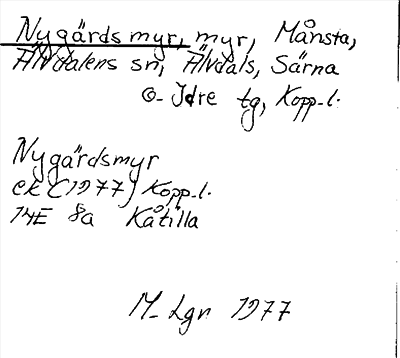 Nygårds myr, myr, Månsta,
Älvdalens sn, Älvdals, Särna
o- Idre tg, Kopp-l.
Nygärdsmyr
ek (1977) Kopp-l.
14E 8a Kåtilla
M- Lgn 1977